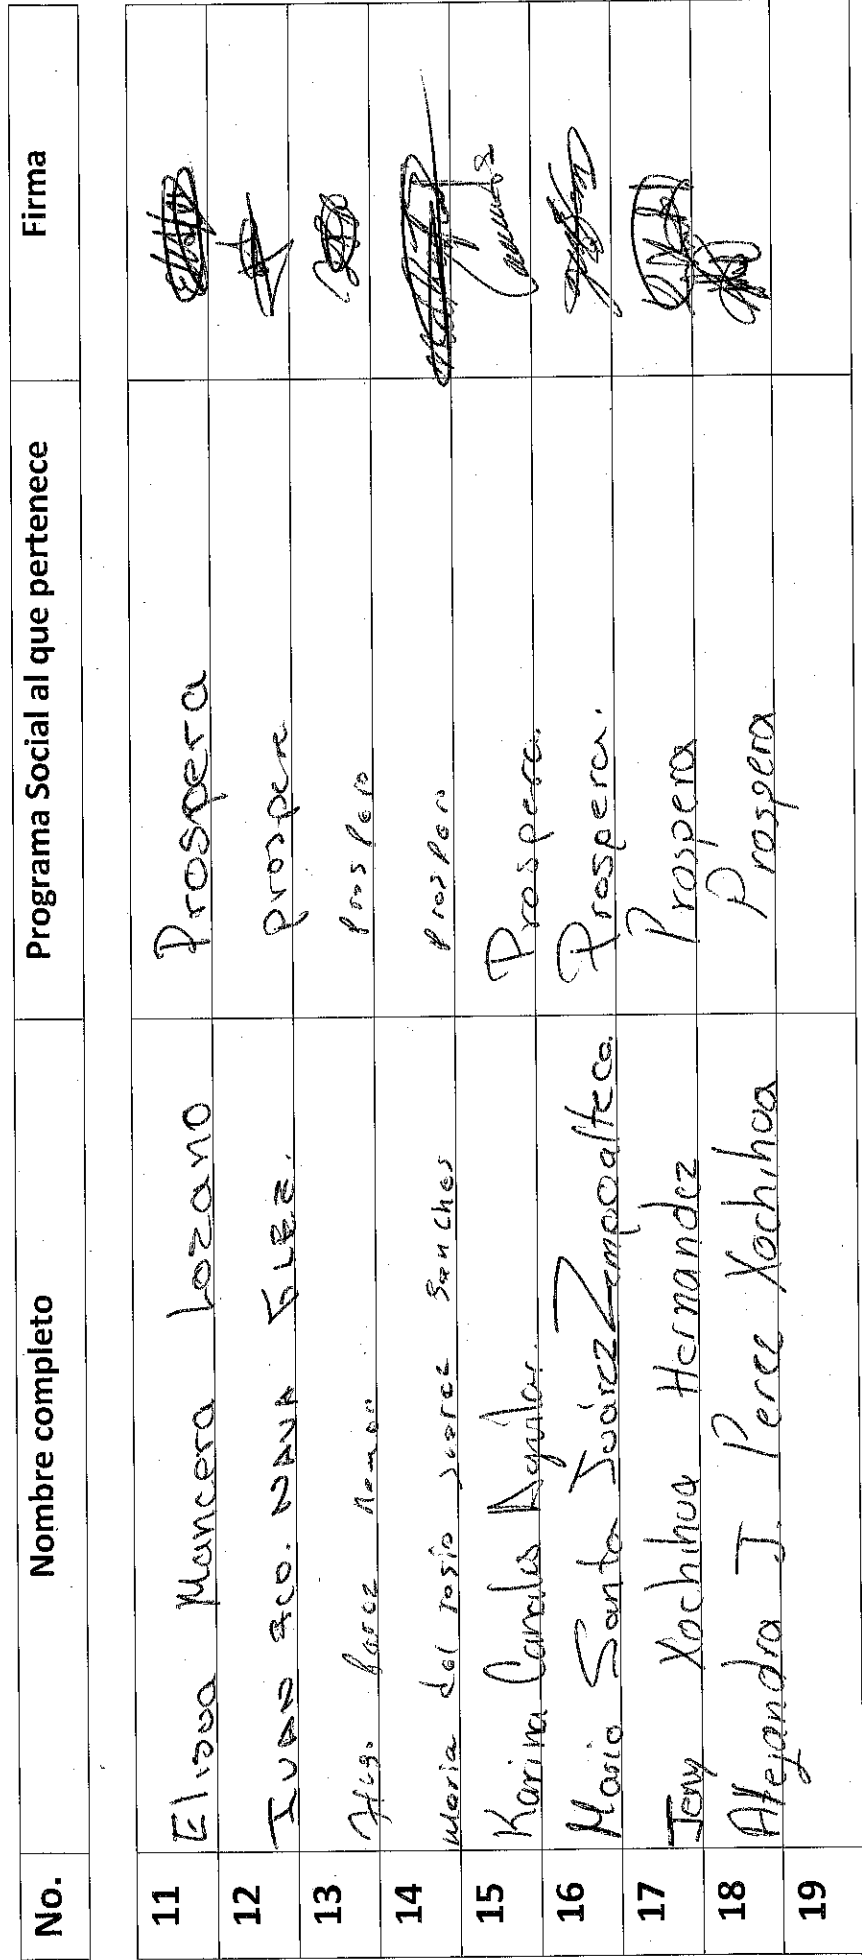 No. Nombre completo Programa Social al que pertenece Firma
11 Elisua Mancera Lozano Prospera
12 IVAN FCO. NAVA GLEZ. prospera
13 Prospero
14 Maria del rosio Juarez Sanches Prospero
15 Karina Canales Aguilar. Prospera.
16 Maria Santa Juárez Zempoalteca. Prospera.
17 Jeny Xochihua Hernandez Prospera
18 Alejandra J. Perez Xochihua Prospera
19